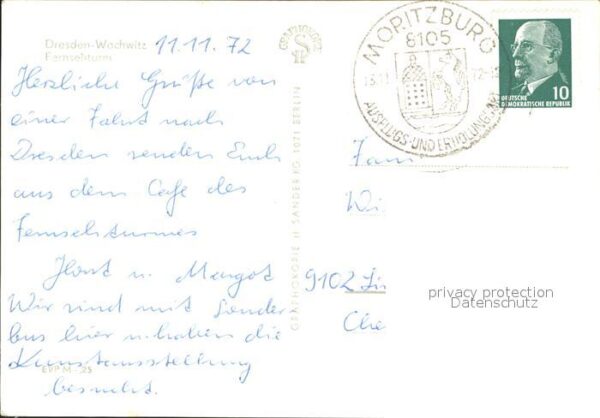 Dresden-Wachwitz
Fernsehturm
11.11.72
Herzliche Grüße von
einer Fahrt nach
Dresden senden Euch
aus dem Cafe des
Fernsehturmes
Horst u. Margot
Wir sind mit Sonder
bus hier u. haben die
Kunstausstellung
besucht.
EVP M -,25
GRAPHOKOPIE H. SANDER KG 1071 BERLIN
GRAPHOKOPIE
HS
MORITZBURG
8105
AUSFLUGS- UND ERHOLUNGSORT
DEUTSCHE
DEMOKRATISCHE REPUBLIK
10
Fam
Wi
9102 Li
Che
privacy protection
Datenschutz